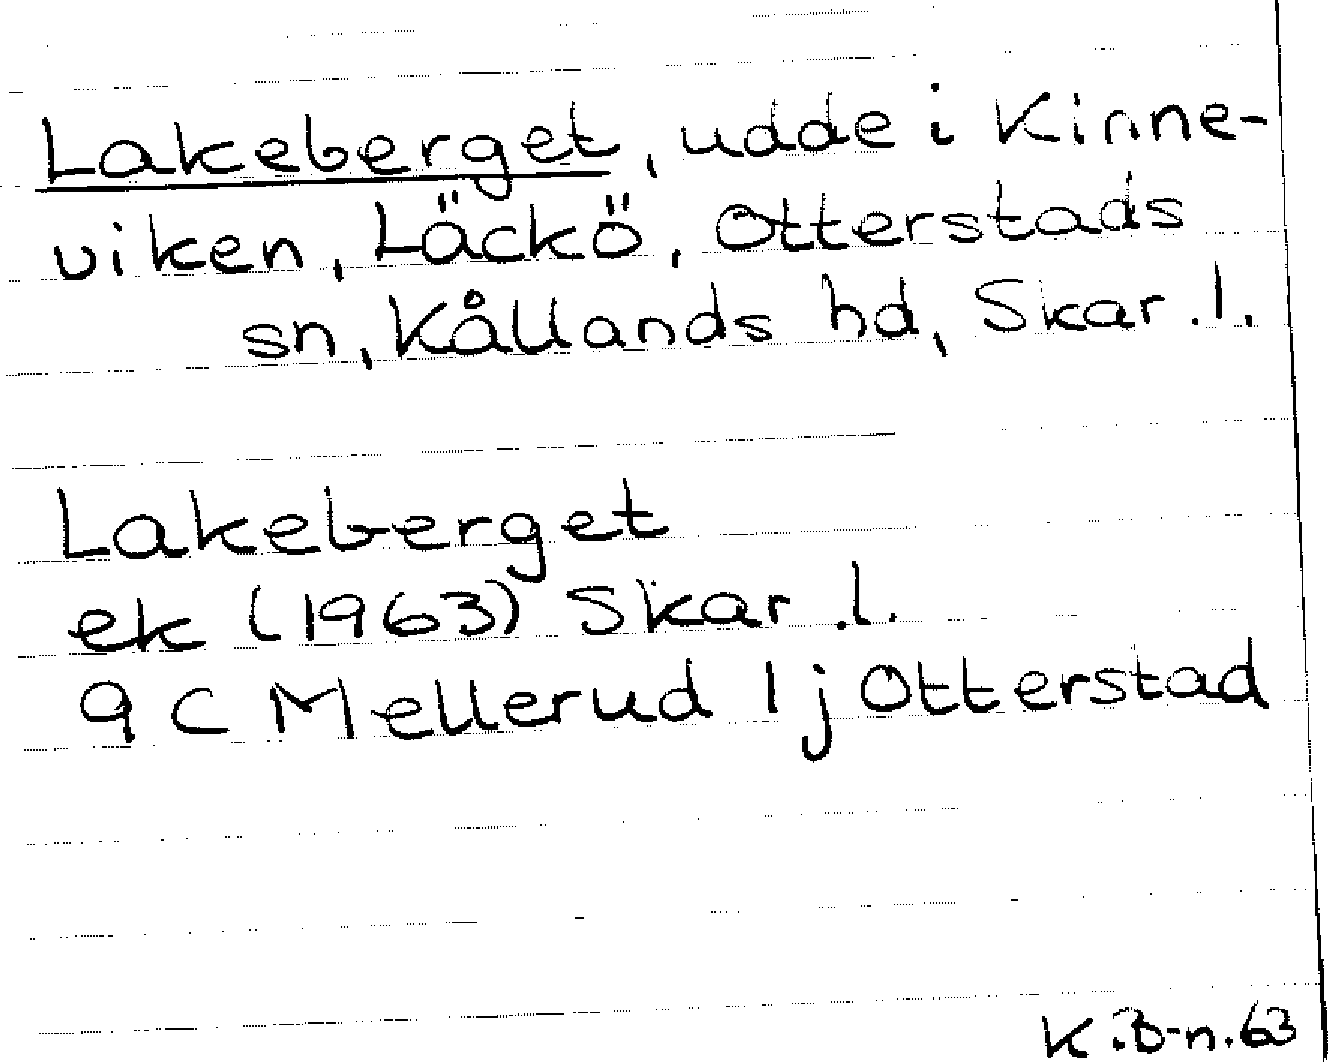 Lakeberget, udde i Kinne-
viken, Läckö, Otterstads
sn, Kållands hd, Skar.l.
Lakeberget
ek (1963) Skar.l.
9 C Mellerud 1 j Otterstad
K.B-n.63